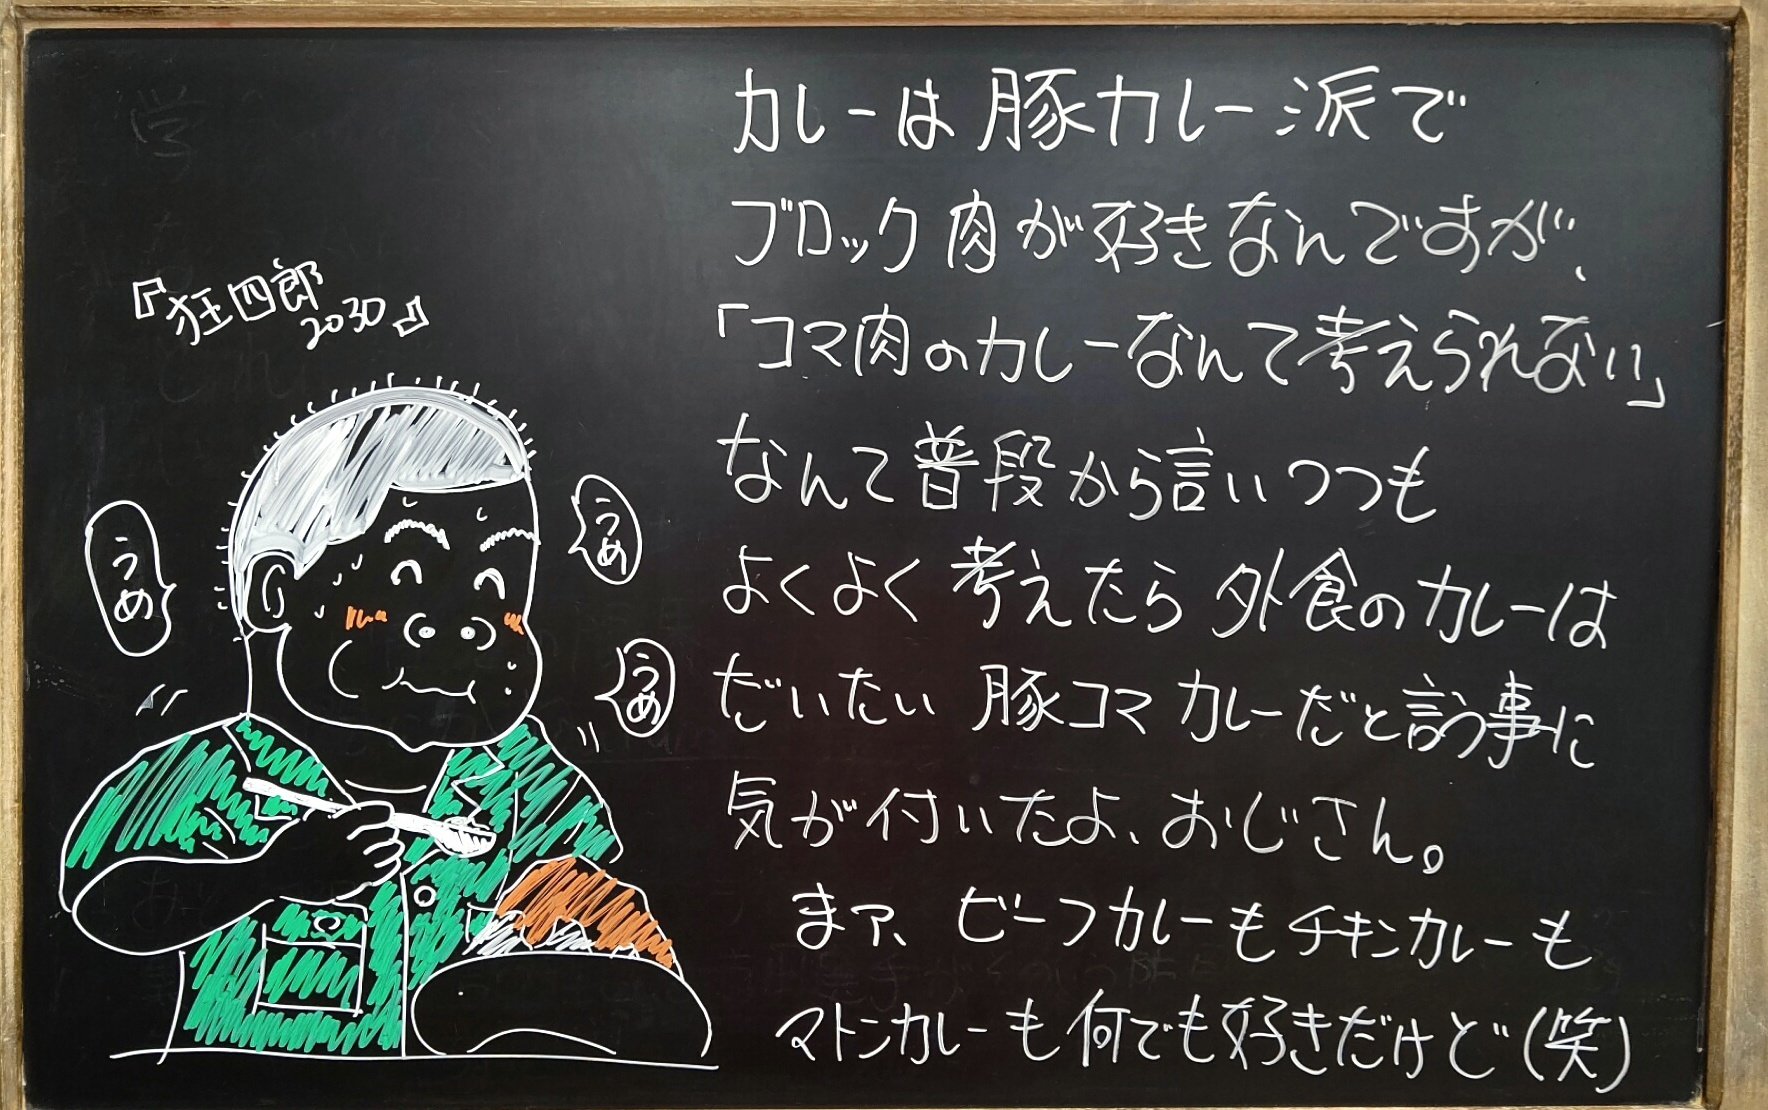 カレーは豚カレー派で
ブロック肉が好きなんですが、
「コマ肉のカレーなんて考えられない」
なんて普段から言いつつも
よくよく考えたら外食のカレーは
だいたい豚コマカレーだと言う事に
気が付いたよ、おじさん。
まァ、ビーフカレーもチキンカレーも
マトンカレーも何でも好きだけど(笑)
『狂四郎
2030』
うめ
うめ
うめ